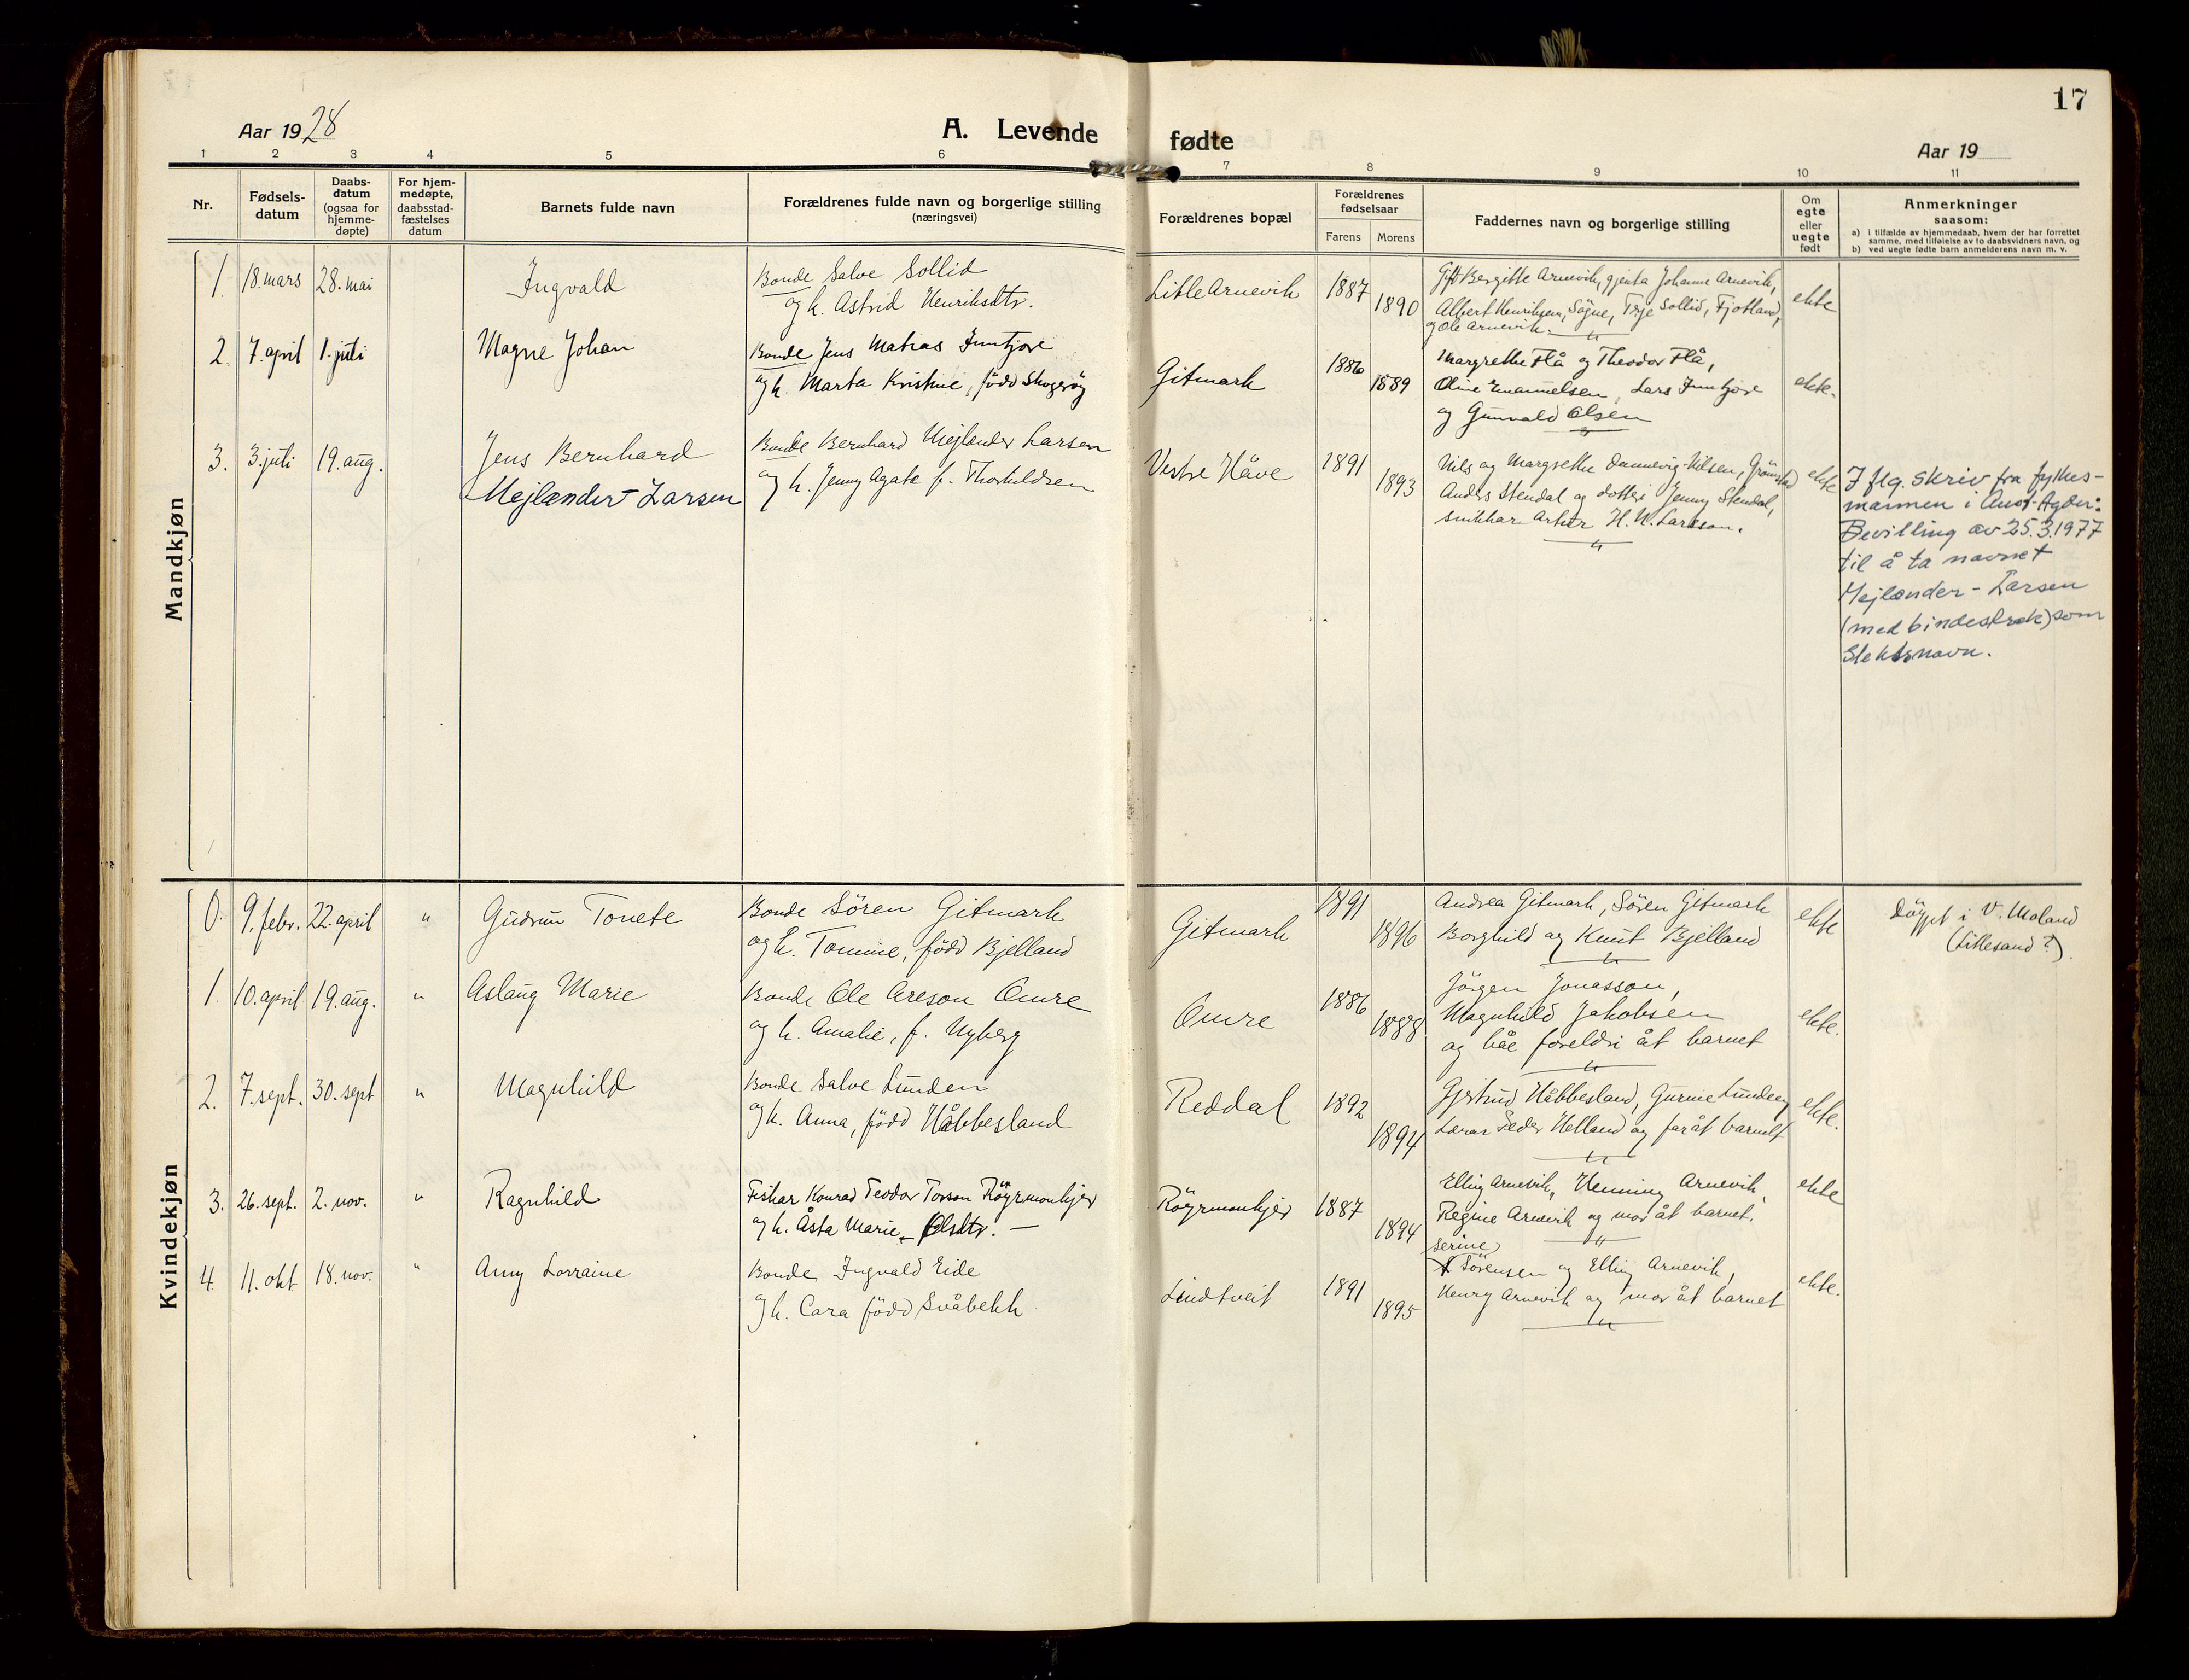 17
Aar 1928
A. Levende fødte
Aar 19
1 2 3 4 5 6 7 8 9 10 11
Nr.
Fødsels-
datum
Daabs-
datum
(ogsaa for
hjemme-
døpte)
For hjem-
medøpte,
daabsstad-
fæstelses
datum
Barnets fulde navn
Forældrenes fulde navn og borgerlige stilling
(næringsvei)
Forældrenes bopæl
Forældrenes
fødselsaar
Farens Morens
Faddernes navn og borgerlige stilling
Om
egte
eller
uegte
født
Anmerkninger
saasom:
a) i tilfælde av hjemmedaab, hvem der har forrettet
samme, med tilføielse av to daabsvidners navn, og
b) ved uegte fødte barn anmelderens navn m. v.
Mandkjøn
1. 18. mars 28. mai Ingvald
Bonde Salve Sollid
og k. Astrid Henriksdtr.
Litle Arnevik 1887 1890
Gift Bergitte Arnevik, gjenta Johanne Arnevik,
Albert Henriksen, Søgne, Terje Sollid, Fjotland,
og Ole Arnevik.
ekte
2. 7. april 1. juli Magne Johan
Bonde Jens Matias
og k. Marta Kristine, född
Gitmark 1886 1889
Margrethe Flå og Theodor Flå,
Oline Emanuelsen, Lars
og Gunvald Olsen
ekte.
3. 3. juli 19. aug. Jens Bernhard
Mejlænder-Larsen
Bonde Bernhard Mejlænder Larsen
og k. Jenny Agate f. Thorkildsen
Vestre Håve 1891 1893
Nils og Margrethe Dannevig-Nilsen, Grömstad
Anders Stendal og dotter Jenny Stendal,
snikkar Artur H. W. Larsson.
ekte
I flg. skriv fra fylkes-
mannen i Aust-Agder:
Bevilling av 25.3.1977
til å ta navnet
Mejlænder-Larsen
(med bindestrek) som
slektsnavn.
Kvindekjøn
0. 9. febr. 22. april " Gudrun Tonete
Bonde Sören Gitmark
og k. Tomine, född Bjelland
Gitmark 1891 1896
Andrea Gitmark, Sören Gitmark
Borghild og Knut Bjelland
ekte
Döypt i V. Moland
(Lillesand?).
1. 10. april 19. aug. " Aslaug Marie
Bonde Ole Areson Omre
og k. Amalie, f. Nyberg
Omre 1886 1888
Jörgen Jonasson,
Magnhild Jakobsen
og båe foreldri åt barnet
ekte.
2. 7. sept. 30. sept " Magnhild
Bonde Salve Lunden
og k. Anna, född Håbbesland
Reddal 1892 1894
Gjertrud Håbbesland, Gurine Lunden,
Lærar Peder Helland og far åt barnet
ekte.
3. 26. sept. 2. nov. " Ragnhild
Fiskar Konrad Teodor Torson Röyrmonkjer
og k. Åsta Marie Olsdtr. —
Röyrmonkjer 1887 1894
Elling Arnevik, Henning Arnevik,
Regine Arnevik og mor åt barnet.
ekte
4. 11. okt 18. nov. " Anny Lorraine
Bonde Ingvald Eide
og k. Cara född Svåbekk
Lindtveit 1891 1895
Serine
Sörensen og Elling Arnevik,
Henry Arnevik og mor åt barnet
ekte.